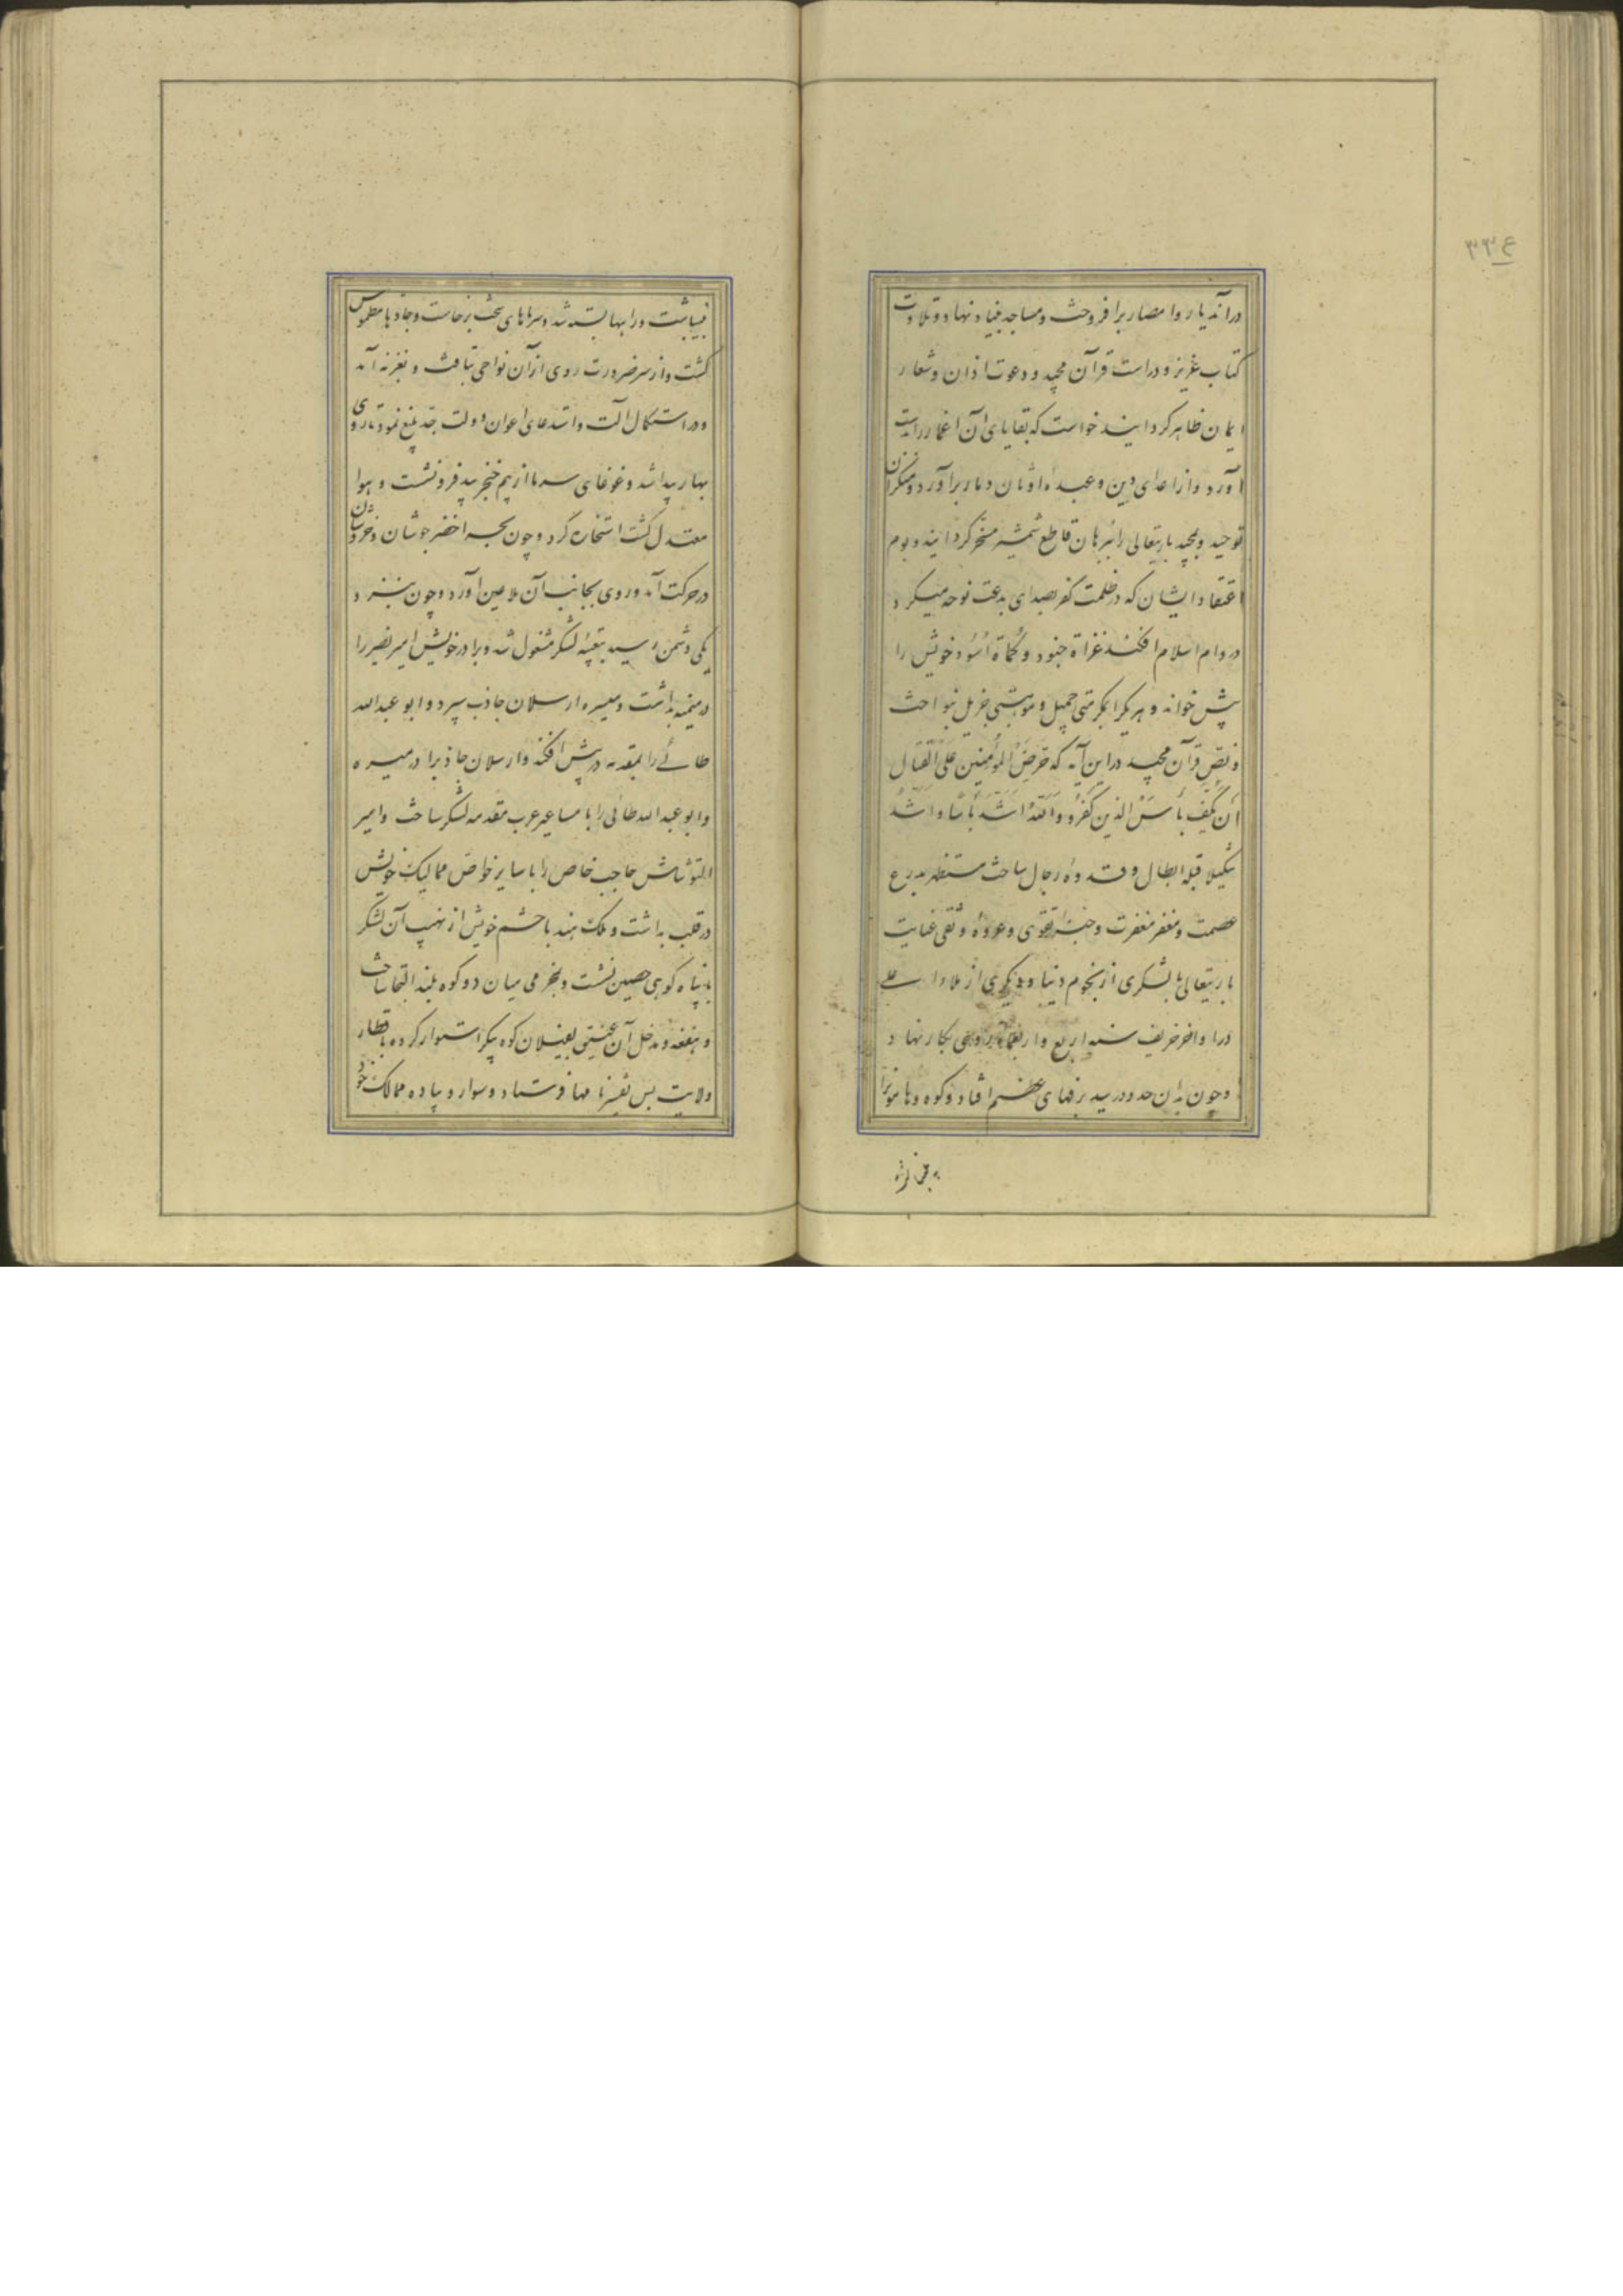 در آن دیار و امصار برافروخت و مساجد بنیاد نهاد و تلاوت
کتاب عزیز و دراست قرآن مجید و دعوت اذان و شعار
ایمان ظاهر کردانید خواست که بقایای آن اغمار را بدست
آورد و از اعدای دین و عبده اوثان دمار برآورد و منکران
توحید و تمجید باریتعالی را ببرهان قاطع شمشیر مسخر کرداند و بوم
اعتقاد ایشان که در ظلمت کفر بصدای بدعت نوحه میکرد
در دام اسلام افکند غزاة جنود و کماة اسود خویش را
پیش خواند و هر یکرا بکرمتی جمیل و موهبتی جزیل بنواخت
و نص قرآن مجید در این آیه که حَرِّضِ المؤمنین عَلَی القتال
أن یکف بأس الذین کفروا وَالله اشد بأسا و اشد
تنکیلا قبله ابطال و قدوه رجال ساخت مستظهر بدرع
عصمت و مغفر مغفرت و جنه تقوی و عروه وثقی عنایت
باریتعالی با لشکری از نجوم دنیا و دیگری از ملاء اعلی
در اواخر خریف سنه اربع و اربعمائه روی بکار نهاد
و چون بدان حدود رسید برفهای عظیم افتاد و کوه و هامونرا
۳۳ع
بینباشت و راهها بسته شد و سرماهای سخت برخاست و جادها مطموس
کشت و از سر ضرورت روی از آن نواحی بتافت و بغزنه آمد
و در استکمال آلت و استدعای اعوان دولت جد بلیغ نمود تا روی
بهار پیدا شد و غوغای سرما از بیم خنجر بید فرو نشست و هوا
معتدل کشت استخاره کرد و چون بحر اخضر جوشان و خروشان
در حرکت آمد و روی بجانب آن ملاعین آورد و چون بنزد
یکی دشمن رسید بتعبیه لشکر مشغول شد و برادر خویش امیر نصر را
در میمنه بداشت و میسره ارسلان جاذب سپرد و ابو عبدالله
طائی را بمقدمه در پیش افکند و ارسلان جاذبرا در میسره
و ابو عبدالله طائی را با مساعیر عرب مقدمه لشکر ساخت و امیر
التونتاش حاجب خاص را با سایر خواص ممالیک خویش
در قلب بداشت و ملک هند با حشم خویش از نهیب آن لشکر
با پناه کوهی حصین نشست و بخرمی میان دو کوه بلند التجا ساخت
و منفذ و مدخل آن بفیلان کوه پیکر استوار کرده باقطار
ولایت بس نفیر نامها فرستاد و سوار و پیاده ممالک خود